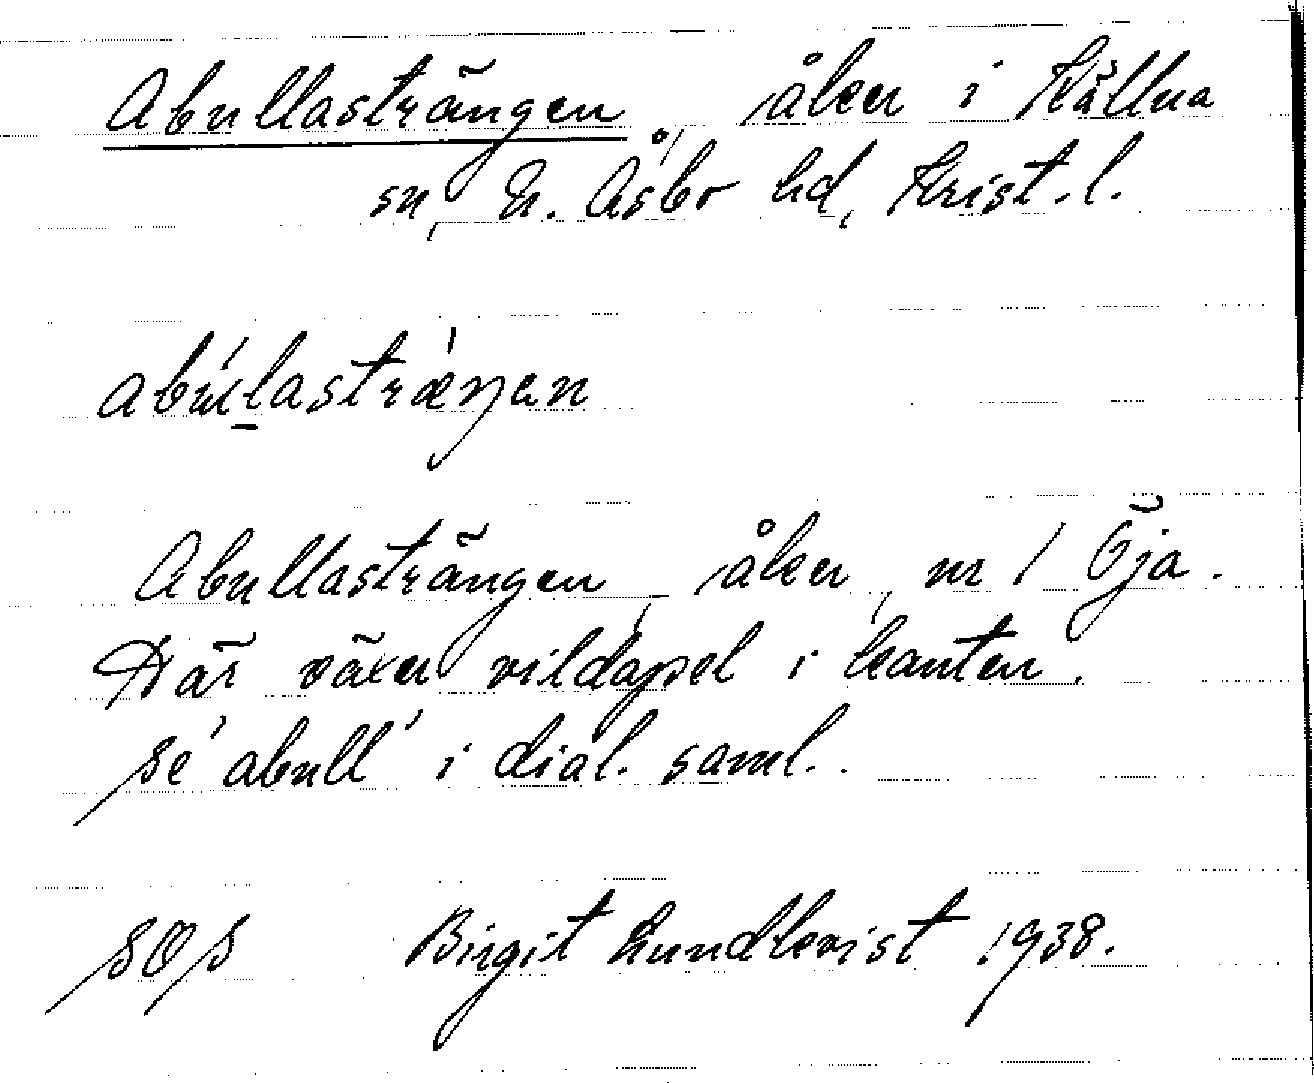 Abullasträngen, åker i Källna
sn, N. Åsbo hd, Krist. l.
abúl̠astræ̀ŋen
Abullasträngen, åker, nr 1 Öja.
Där växer vildapel i kanten.
Se 'abull' i dial. saml..
SOS Birgit Lundkvist 1938.